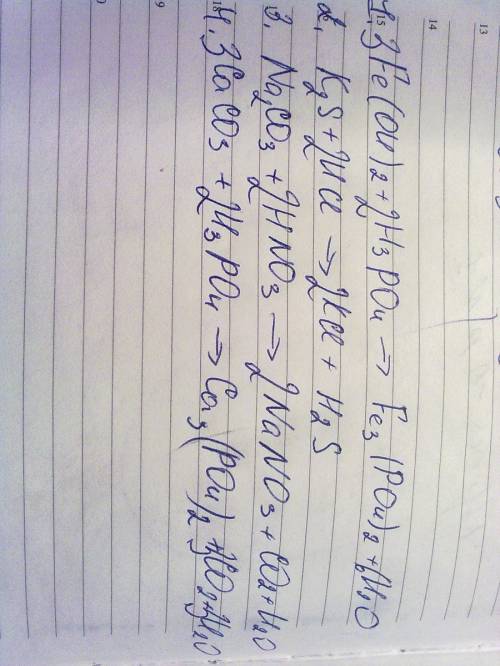 13
14
15
1. 3Fe(OH)2 + 2H3PO4 → Fe3(PO4)2 + 6H2O
2. K2S + 2HCl → 2KCl + H2S
3. Na2CO3 + 2HNO3 → 2NaNO3 + CO2 + H2O
18
4. 3CaCO3 + 2H3PO4 → Ca3(PO4)2 + 3CO2 + 3H2O